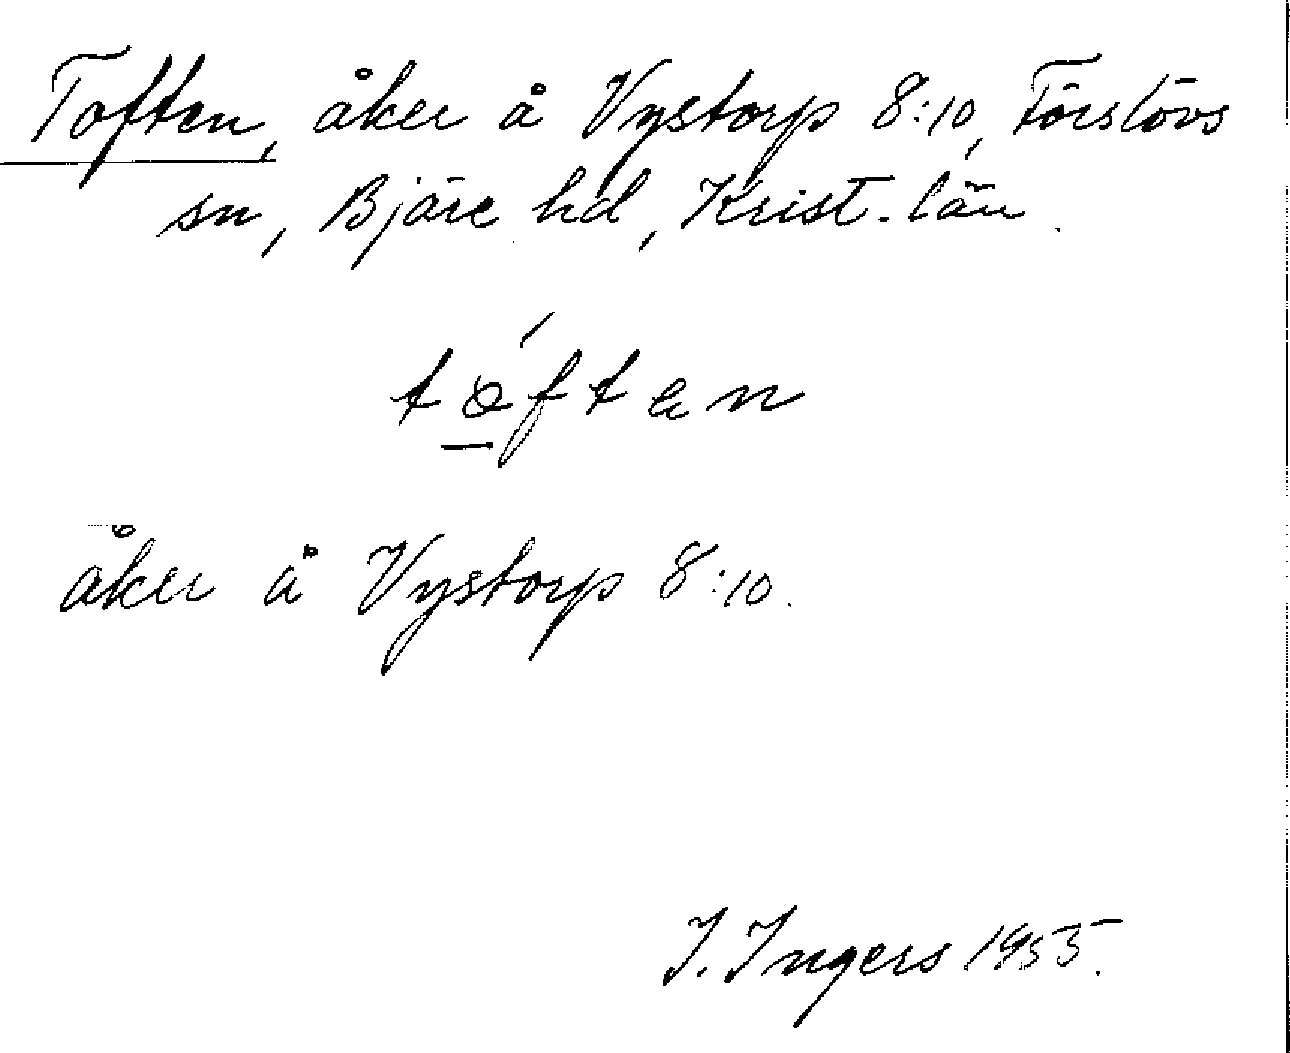 Toften, åker å Vystorp 8:10, Förslövs
sn, Bjäre hd, Krist. län.
åker å Vystorp 8:10.
I. Ingers 1955.